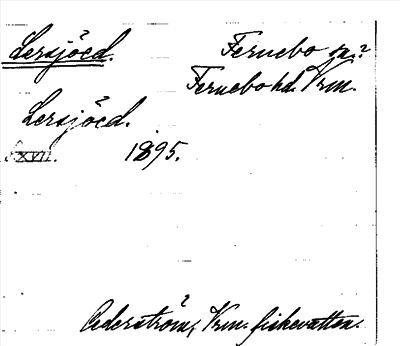 Lersjöed. Fernebo sn.?
Fernebo hd. Vrm.
Lersjöed.
S. XVII. 1895.
Cederström, Vrm. fiskevatten.